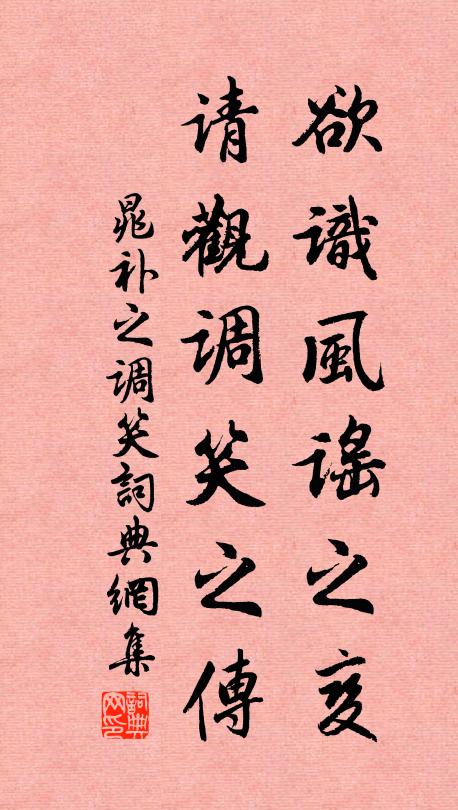 欲識風謠之変
请觀调笑之傳
晁补之调笑詞典網集
詞典网印